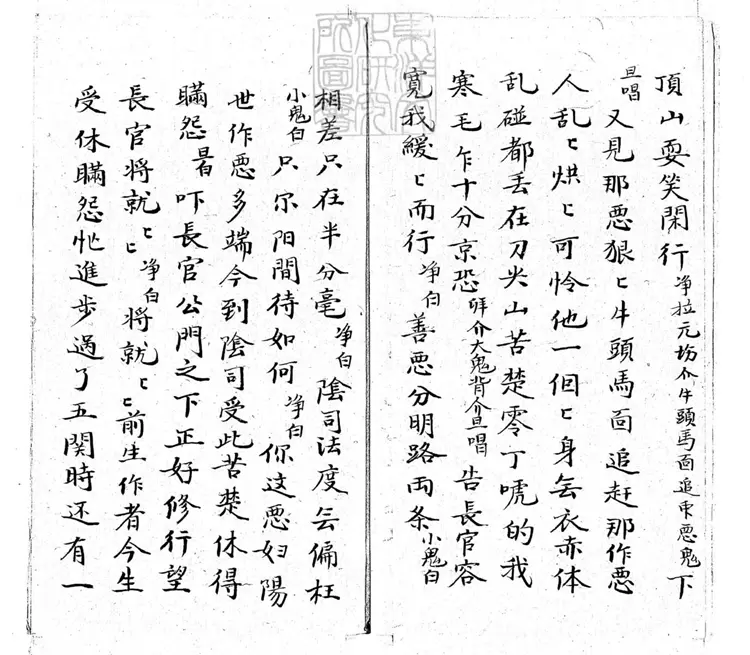 頂山耍笑閑行净拉元场介牛頭馬面追束惡鬼下
旦唱又見那惡狠〻牛頭馬面追赶那作惡
人乱〻烘〻可怜他一個〻身無衣赤体
乱碰都丢在刀尖山苦楚零丁唬的我
寒毛乍十分京恐拜介大鬼背介旦唱告長官容
寬我緩〻而行净白善惡分明路両条小鬼白
相差只在半分毫净白陰司法度無偏枉
小鬼白只尔阳間待如何净白你这惡妇陽
世作惡多端今到陰司受此苦楚休得
瞞怨旦看吓長官公門之下正好修行望
長官将就〻〻净白将就〻〻前生作者今生
受休瞞怨忙進步過了五関時还有一